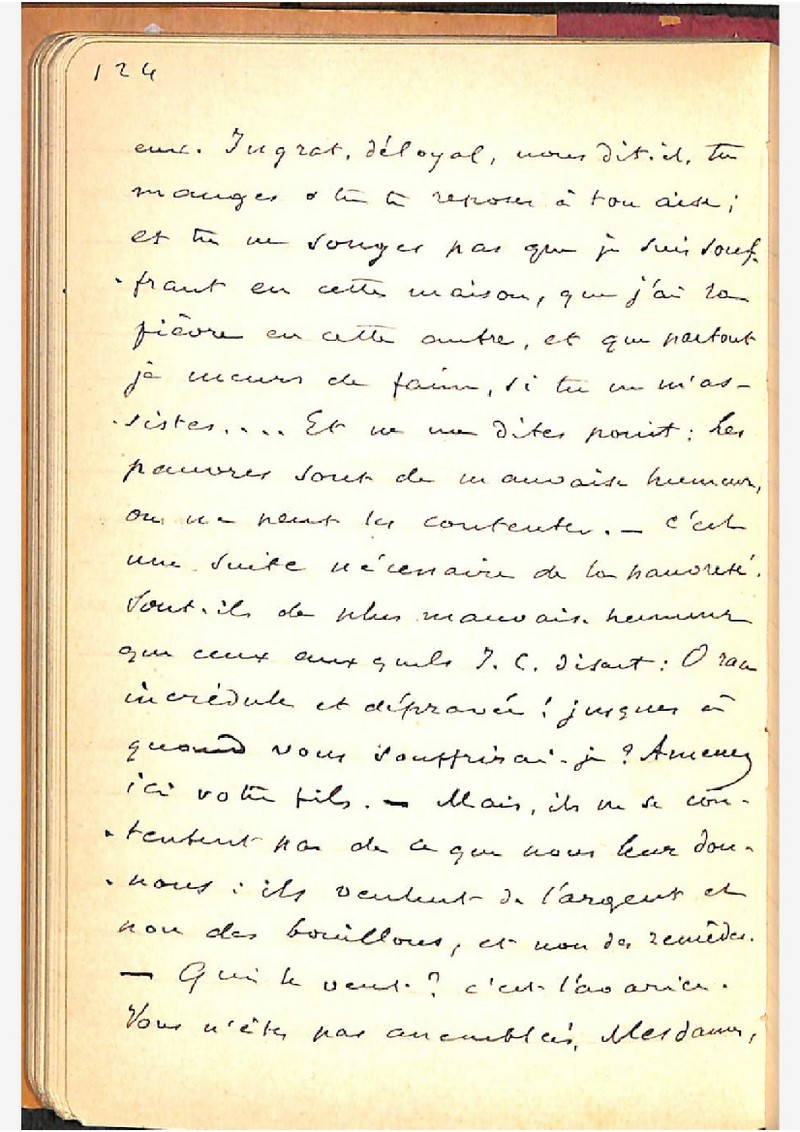 124
eux. Ingrat, déloyal, nous dit-il, tu
manges & tu te reposes à ton aise ;
et tu ne songes pas que je suis souf-
-frant en cette maison, que j'ai la
fièvre en cette autre, et que partout
je meurs de faim, si tu ne m'as-
-sistes.... Et ne me dites point : Les
pauvres sont de mauvaise humeur,
on ne peut les contenter. — C'est
une suite nécessaire de la pauvreté.
Sont-ils de plus mauvaise humeur
que ceux auxquels J. C. disait : O race
incrédule et dépravée ! jusques à
quand vous souffrirai-je ? Amenez
ici votre fils. — Mais, ils ne se con-
-tentent pas de ce que nous leur don-
-nons : ils veulent de l'argent et
non des bouillons, et non des remèdes.
— Qui le veut ? c'est l'avarice.
Vous n'êtes pas assemblées, Mesdames,